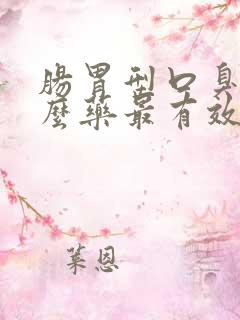 腸胃型口臭
麼藥最有效
葉恩